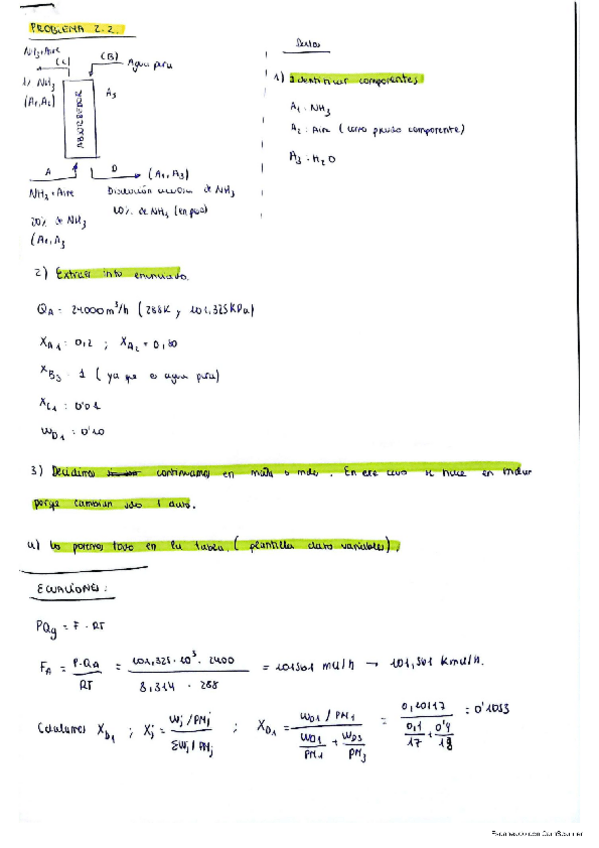 PROBLEMA 2.2.
NH3+Aire
(C)
(B)
Agua pura
1% NH3
(A1,A2)
ABSORBEDOR
A3
A
D
(A1, A3)
NH3 + Aire
Disolución acuosa de NH3
20% de NH3
10% de NH3 (en peso)
(A1, A3
1) Identificar componentes
A1: NH3
A2: Aire (como pseudo componente)
A3: H2O
2) Extraer info enunciado.
QA = 24000 m3/h (288K y 101,325 KPa)
XA1 = 0,2 ; XA2 = 0,80
XB3 = 1 (ya que es agua pura)
XC1 = 0'01
WD1 = 0'10
3) Decidimos continuamos en masa o moles. En ese caso se hace en
porque cambian solo 1 dato.
4) Lo ponemos todo en la tabla. (plantilla datos variables).
ECUACIONES:
PQg = F · RT
FA = P·QA / RT = 101,325·10^3 · 2400 / 8,314 · 288 = mol/h → 101,501 kmol/h.
Calculamos XD1 ; Xj = Wj/PMj / ΣWj/PMj ; XD1 = WD1/PM1 / WD1/PM1 + WD3/PM3 = 0,10/17 / 0,1/17 + 0'9/18 = 0'1053